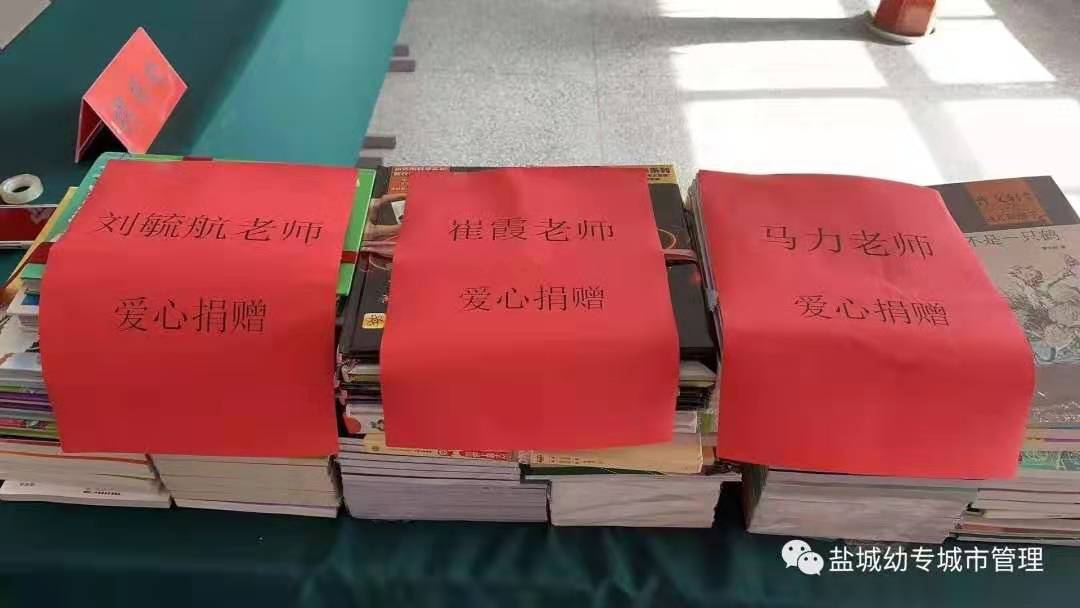 刘毓航老师
爱心捐赠
崔霞老师
爱心捐赠
马力老师
爱心捐赠
不是一只鹤
盐城幼专城市管理